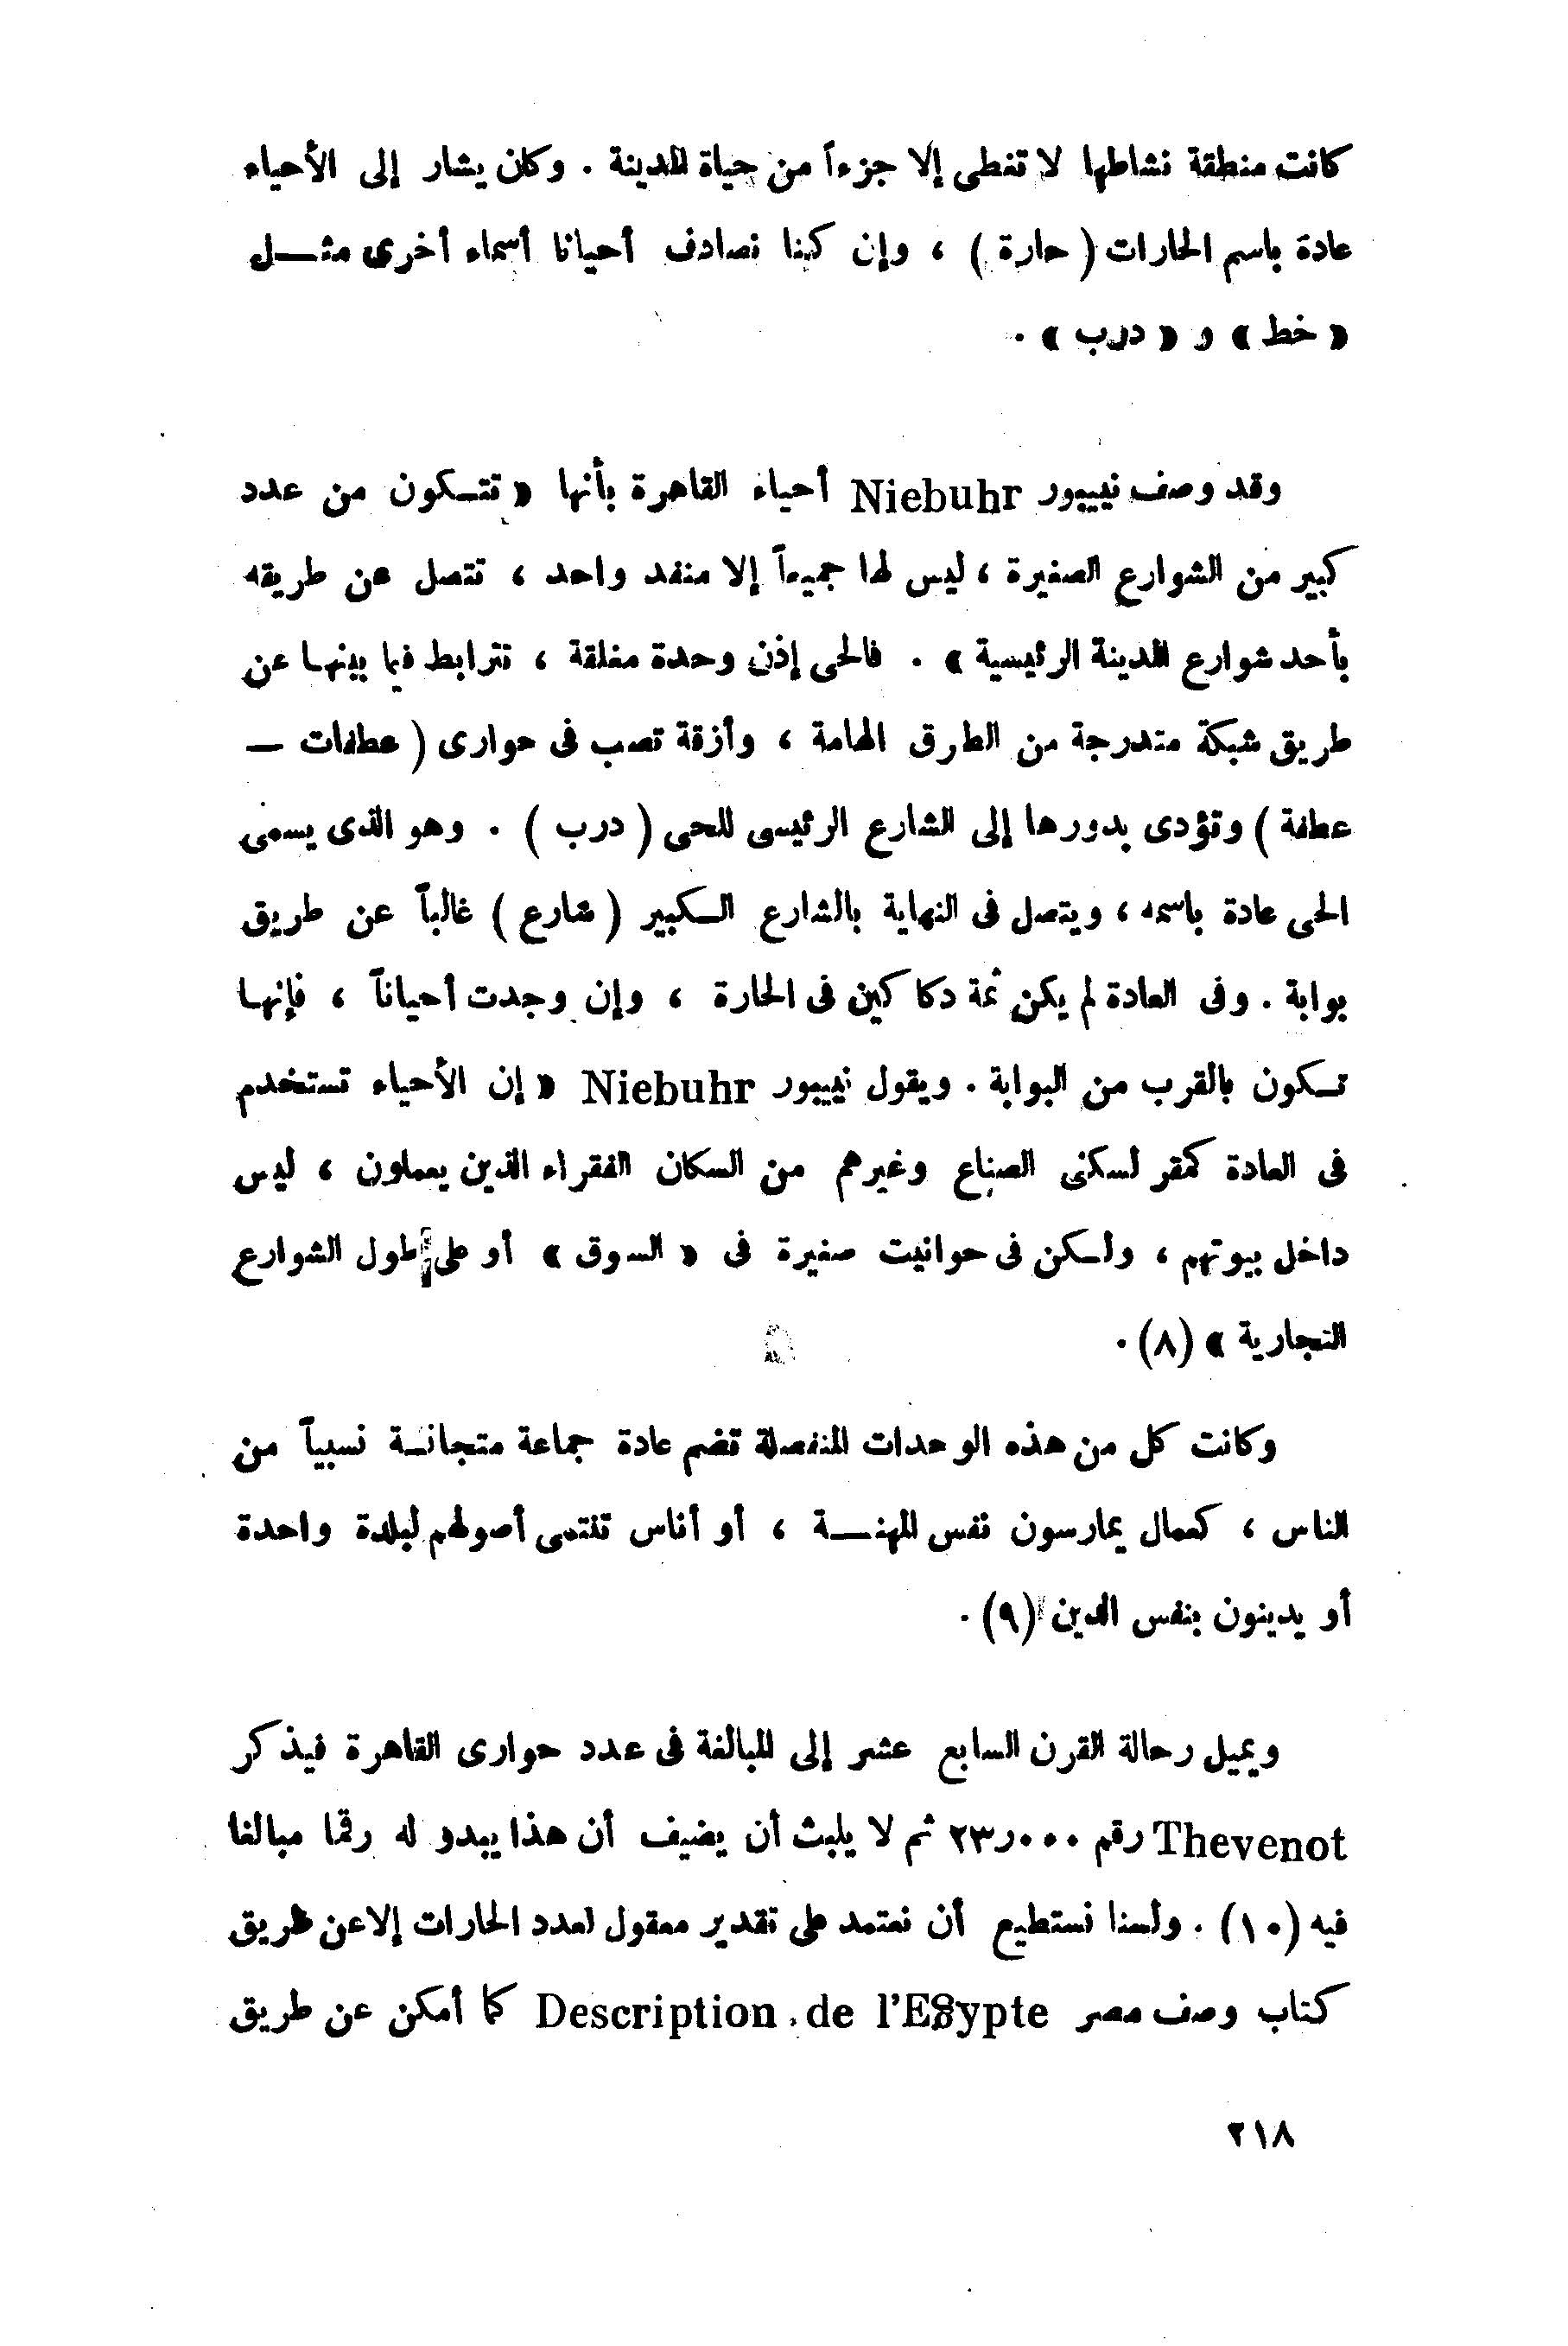 كانت منطقة نشاطها لا تغطى إلا جزءاً من حياة المدينة . وكان يشار إلى الأحياء
عادة باسم الحارات ( حارة ) ، وإن كنا نصادف أحيانا أسماء أخرى مثـــل
« خط » و « درب » .
وقد وصف نيبور Niebuhr أحياء القاهرة بأنها « تتـكون من عدد
كبير من الشوارع الصغيرة ، ليس لها جميعاً إلا منفد واحد ، تتصل عن طريقه
بأحد شوارع المدينة الرئيسية » . فالحى إذن وحدة مغلقة ، تترابط فيما بينهـا عن
طريق شبكة متدرجة من الطرق الهامة ، وأزقة تصب فى حوارى ( عطفات –
عطفة ) وتؤدى بدورها إلى الشارع الرئيسى للحى ( درب ) . وهو الذى يسمى
الحى عادة باسمه ، ويتصل فى النهاية بالشارع الـكبير ( شارع ) غالباً عن طريق
بوابة . وفى العادة لم يكن ثمة دكاكين فى الحارة ، وإن وجدت أحياناً ، فإنهـا
تـكون بالقرب من البوابة . ويقول نييبور Niebuhr « إن الأحياء تستخدم
فى العادة كمقر لسكنى الصناع وغيرهم من السكان الفقراء الذين يعملون ، ليس
داخل بيوتهم ، ولـكن فى حوانيت صغيرة فى « السوق » أو على طول الشوارع
التجارية » (٨) .
وكانت كل من هذه الوحدات المنفصلة تضم عادة جماعة متجانـسة نسبياً من
الناس ، كعمال يمارسون نفس المهنـــة ، أو أناس تنتمى أصولهم لبلدة واحدة
أو يدينون بنفس الدين (٩) .
ويميل رحالة القرن السابع عشر إلى المبالغة فى عدد حوارى القاهرة فيذكر
Thevenot رقم ٢٣ر٠٠٠ ثم لا يلبث أن يضيف أن هذا يبدو له رقما مبالغا
فيه (١٠) . ولسنا نستطيع أن نعتمد على تقدير معقول لعدد الحارات إلا عن طريق
كتاب وصف مصر Description de l'Egypte كما أمكن عن طريق
٢١٨